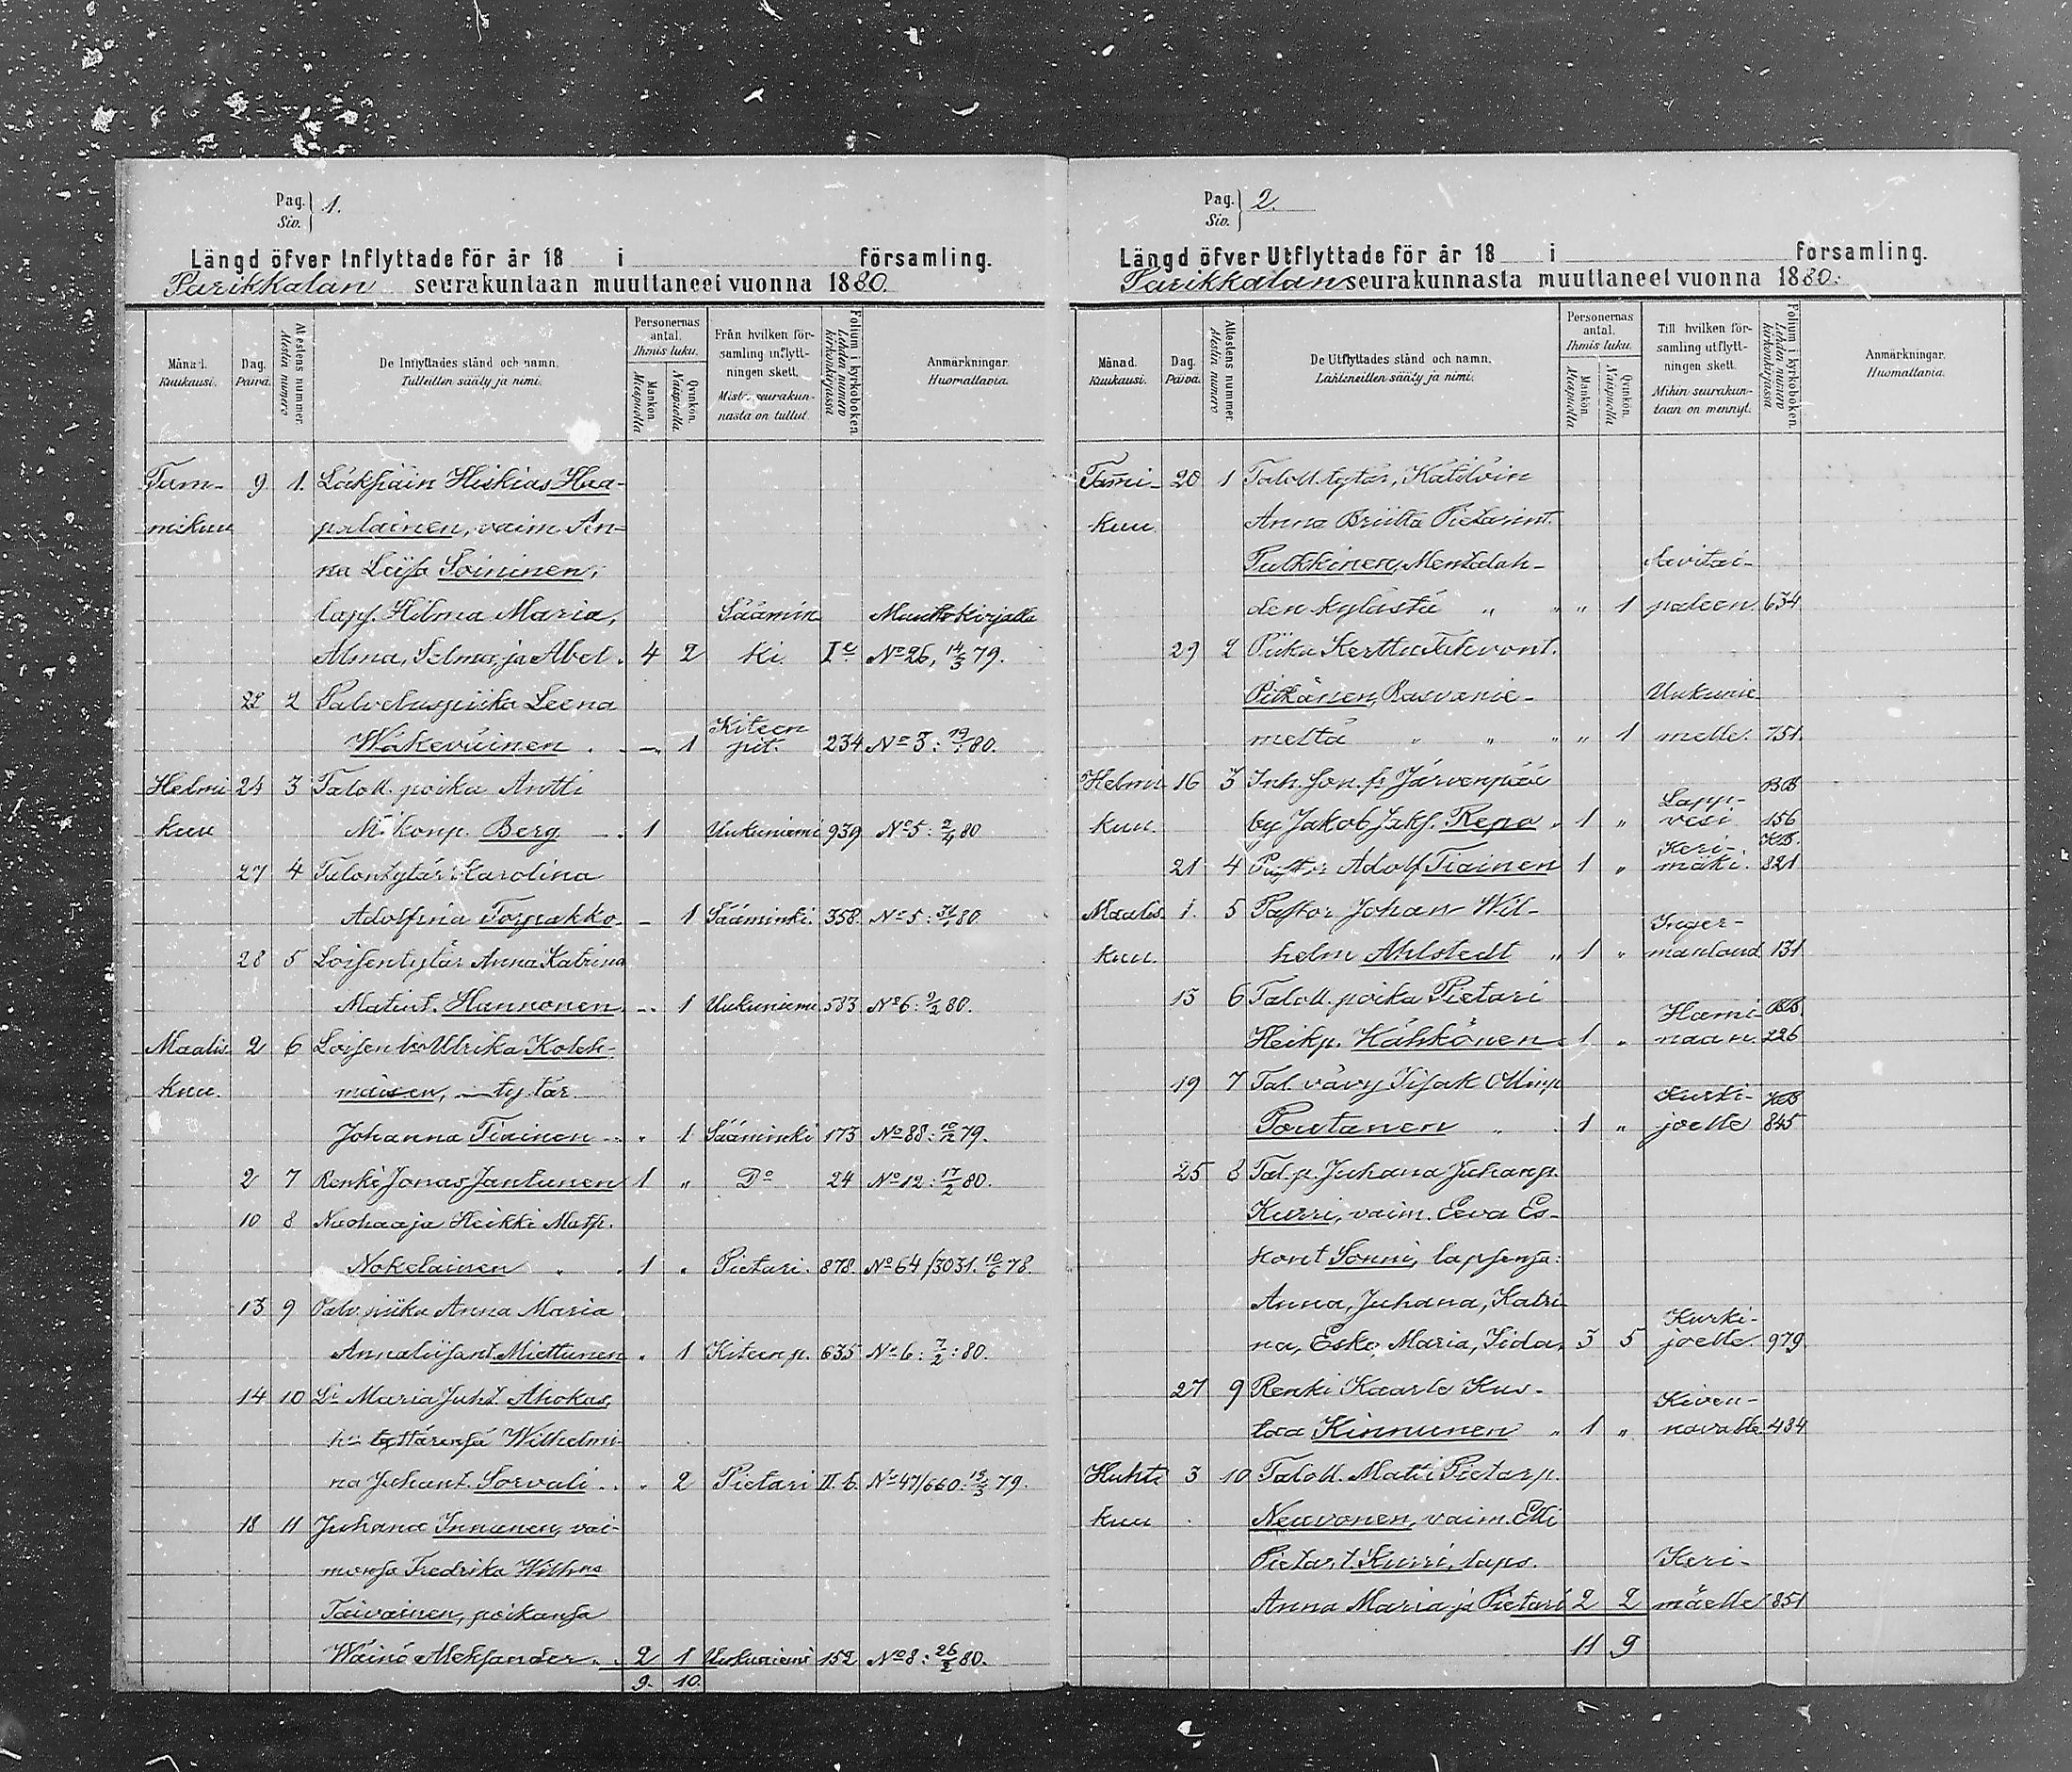 Pag. Siv. } 1.
Längd öfver Inflyttade för år 18 i församling.
Parikkalan seurakuntaan muuttaneet vuonna 1880.
Månad. Kuukausi.
Dag. Päivä.
Attestens nummer. Alestin numero
De Inflyttades stånd och namn. Tulleitten sääty ja nimi.
Personernas antal. Ihmis luku.
Mankön. Miespuolia
Qvinkön. Naispuolia.
Från hvilken församling inflyttningen skett. Mistä seurakunnasta on tullut.
Folium i kyrkoboken. Lehden numero kirkonkirjassa
Anmärkningar. Huomattavia.
Tam- 9 1. Läkkjäin Hiskias Haa-
mikuu palainen, vaim. An-
na Leisa Soininen,
laps. Hilma Maria, Säämin Muuttokirjalla
Alma, Selma, ja Abel. 4 2 ki. No 26, 14/3 79.
28 2 Palveluspiika Leena
Wäkeväinen . — 1 Kiteen pit. 234 No 3: 19/1 80.
Helmi 24 3 Taloll. poika Antti
kuu M. konp. Berg — 1 Uukuniemi 939 No 5: 2/4 80
27 4 Talontytär Karolina
Adolfina Torpakko — 1 Sääminki. 358. No 5: 31/1 80.
28 5 Loisentytär Anna Katrina
Matint. Hannonen — 1 Uukuniemi 583 No 6: 9/2 80.
Maalis 2 6 Loisen Ulrika Koleh-
kuu. maisen, tytär
Johanna Tiainen „ 1 Sääminki 173 No 88: 10/12 79.
2 7 Renki Jonas Jantunen 1 „ Do 24 No 12: 17/2 80.
10 8 Nuohaaja Heikki Matp.
Nokelainen 1 „ Pietari. 878. No 64/3031. 10/6 78.
13 9 Palv. piika Anna Maria
Annaliisant. Miettunen „ 1 Kiteen p. 635 No 6: 7/2: 80.
14 10 Maria Juht. Ahokas,
tyttärensä Wilhelmi-
na Juhant. Sorvali . „ 2 Pietari II. b. No 47/660: 79.
18 11 Juhana Innanen, vai-
monsa Fredrika Wilhna
Taivainen, poikansa
Wäinö Aleksander. 2 1 Uukuniemi 152 No 8: 26/2 80.
9. 10.
Pag. Siv. } 2.
Längd öfver Utflyttade för år 18 i församling.
Parikkalan seurakunnasta muuttaneet vuonna 1880.
Månad. Kuukausi.
Dag. Päivä.
Attestens nummer. Alestin numero
De Utflyttades stånd och namn. Lähteneitten sääty ja nimi.
Personernas antal. Ihmis luku.
Mankön. Miespuolia
Qvinkön. Naispuolia
Till hvilken församling utflyttningen skett. Mihin seurakuntaan on mennyt.
Folium i kyrkoboken. Lehden numero kirkonkirjassa
Anmärkningar. Huomattavia.
Tami- 20 1 Taloll. tytär, Kätilöin
kuu. Anna Briitta Pietarint.
Pulkkinen, Mentalah-
den kylästä „ „ 1 paleen. 634
29 2 Piika Kerttu Tahvont.
Pitkänen, Rasvanie- Uukunie
meltä „ „ „ 1 melle. 751
Helmi- 16 3 Inh. son. fr Järvenpää BB
kuu. by Jakob Jakf. Repo „ 1 „ Lapp- vesi 156
21 4 Pastor Adolf Tiainen 1 „ Keri- mäki. KB. 821
Maalis 1. 5 Pastor Johan Wil-
kuu. helm Ahlstedt „ 1 „ Inger- manland 131
13 6 Taloll. poika Pietari
Heikp. Kähkönen 1 „ Hami- naan. BB. 226
19 7 Tal. vävy Iisak Ollinp
Poutanen „ 1 „ Kurki- joelle KB 845
25 8 Tal. p. Juhana Juhanp.
Kurri, vaim. Eeva Es-
kont Sonni, lapsensa:
Anna, Juhana, Katri
na, Esko, Maria, Iida, 3 5 Kurki- joelle. 979
27 9 Renki Kaarle Kus-
taa Kinnunen „ 1 „ Kiven- navalle 434
Huhti 3 10 Taloll. Matti Pietarp.
kuu Neuvonen, vaim. Elli
Pietart. Kurri, laps. Keri-
Anna Maria ja Pietari 2 2 mäelle 851
11 9